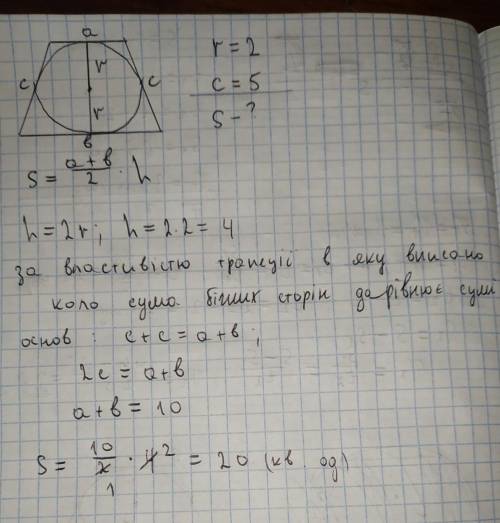 a
r
r = 2
c
c
c = 5
r
S - ?
в
S = (a + в)/2 · h
h = 2r; h = 2·2 = 4
за властивістю трапеції в яку вписано
коло сума бічних сторін дорівнює сумі
основ: c + c = a + в;
2c = a + в
a + в = 10
S = 10/2 · 4 2 = 20 (кв. од)
1